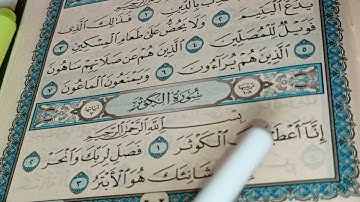 يَدُعُّ الْيَتِيمَ ٢ وَلَا يَحُضُّ عَلَى طَعَامِ الْمِسْكِينِ ٣
فَوَيْلٌ لِلْمُصَلِّينَ ٤ الَّذِينَ هُمْ عَنْ صَلَاتِهِمْ سَاهُونَ
٥ الَّذِينَ هُمْ يُرَاءُونَ ٦ وَيَمْنَعُونَ الْمَاعُونَ ٧
سُورَةُ الْكَوْثَرِ
بِسْمِ اللَّهِ الرَّحْمَٰنِ الرَّحِيمِ
إِنَّا الْكَوْثَرَ ١ فَصَلِّ لِرَبِّكَ وَانْحَرْ ٢
شَانِئَكَ هُوَ الْأَبْتَرُ ٣